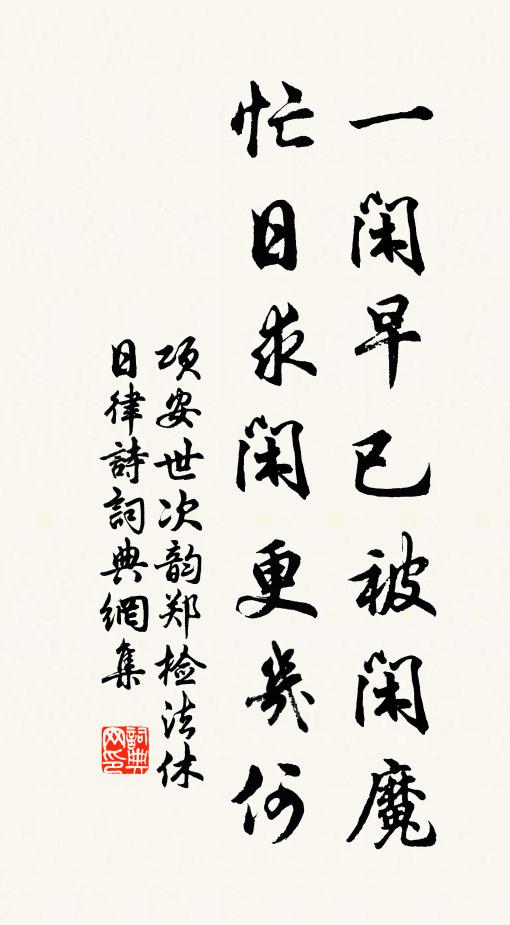 一闲早已被闲魔
忙日求闲更几何
项安世次韵郑检法休
日律詩詞典網集
詞典
网印